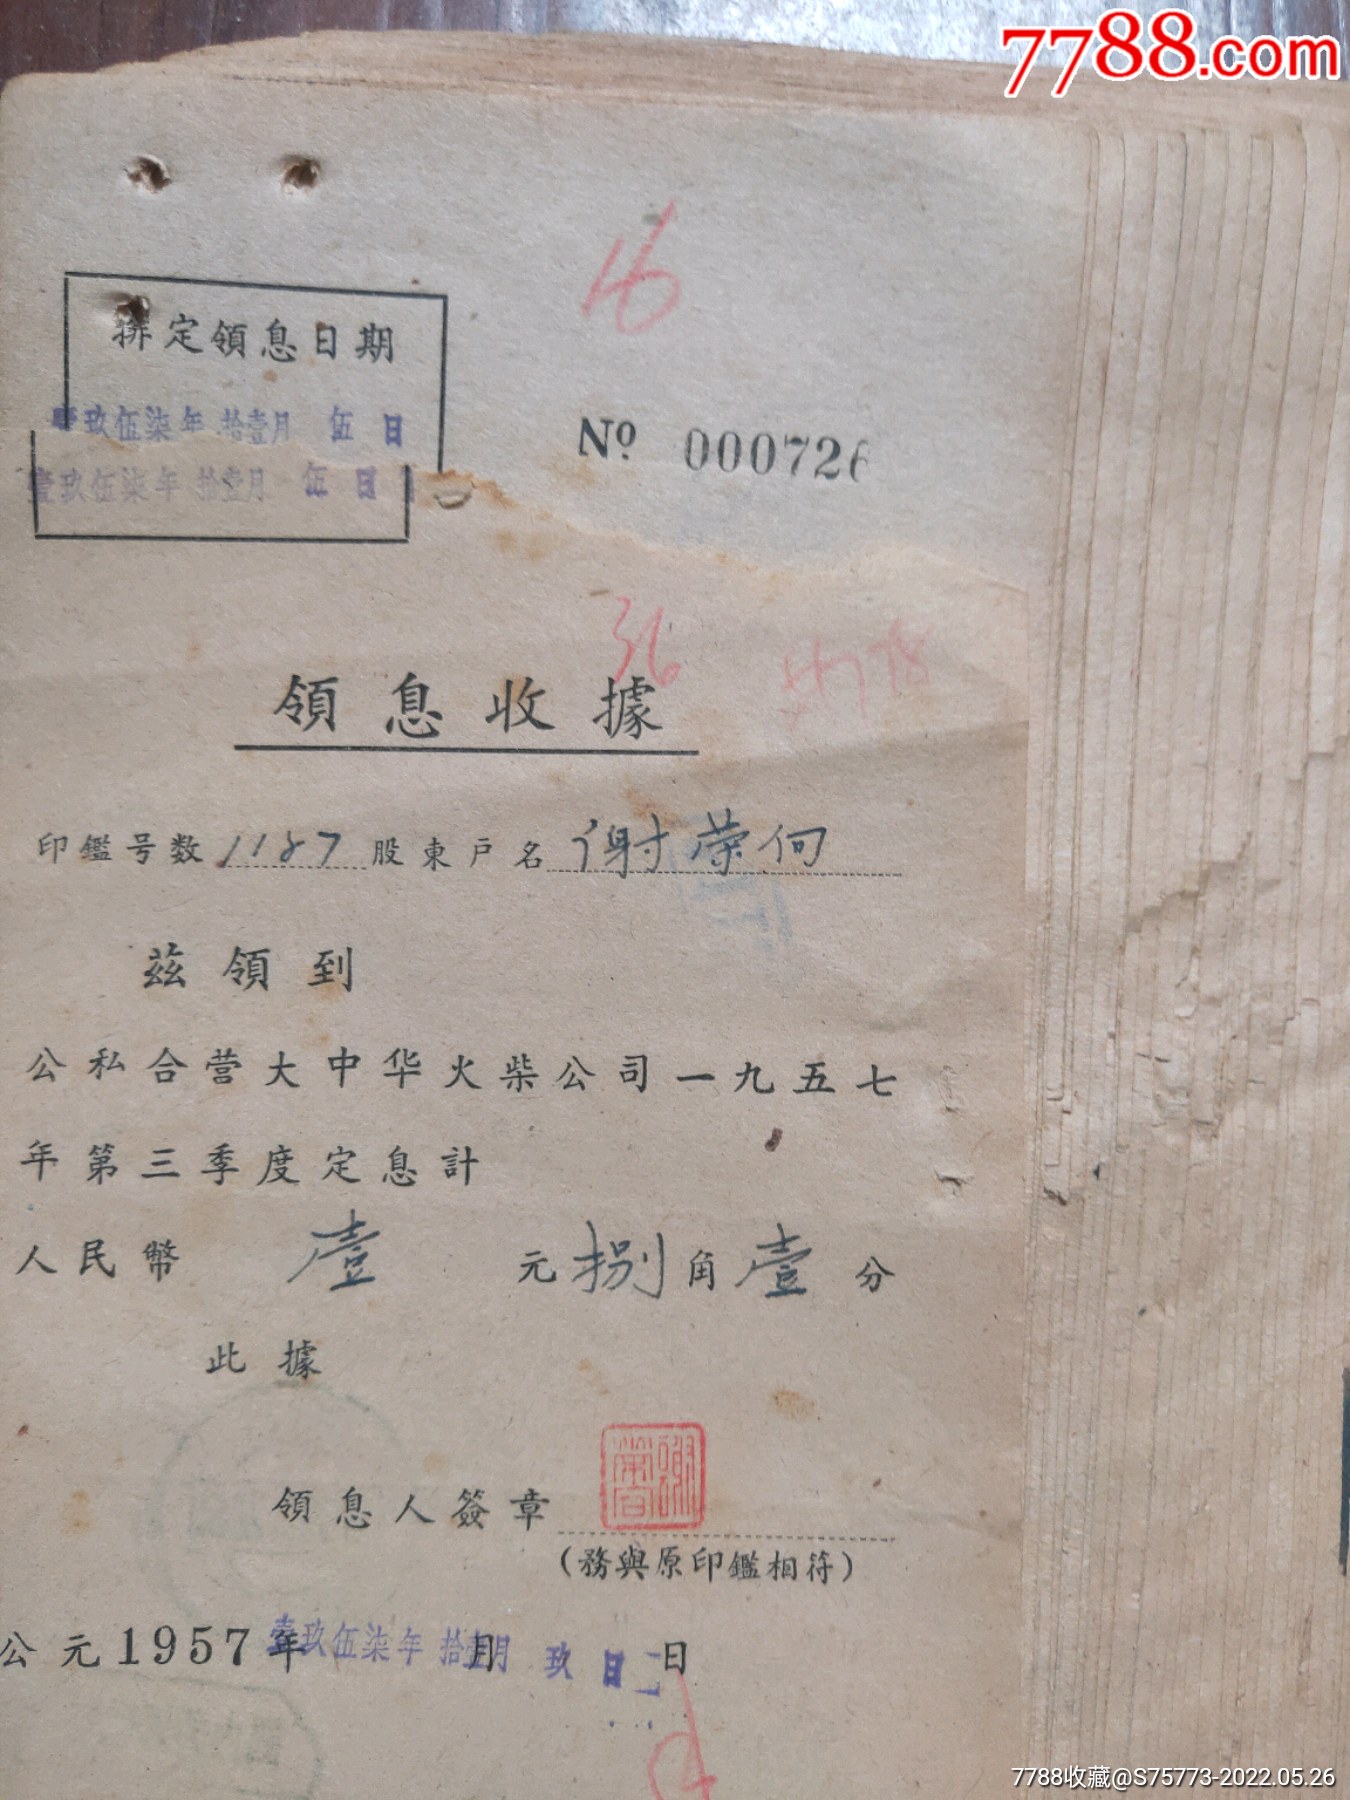 7788.com
16
排定領息日期
壹玖伍柒年拾壹月 伍 日
壹玖伍柒年拾壹月 伍 日
Nº 000726
36
領息收據
印鑑号数 1187 股東戸名 谢荣向
茲領到
公私合营大中华火柴公司一九五七
年第三季度定息計
人民幣 壹 元 捌 角 壹 分
此據
領息人簽章
(務與原印鑑相符)
公元1957年 壹玖伍柒年 拾壹月 月 玖 日 日
7788收藏@S75773-2022.05.26